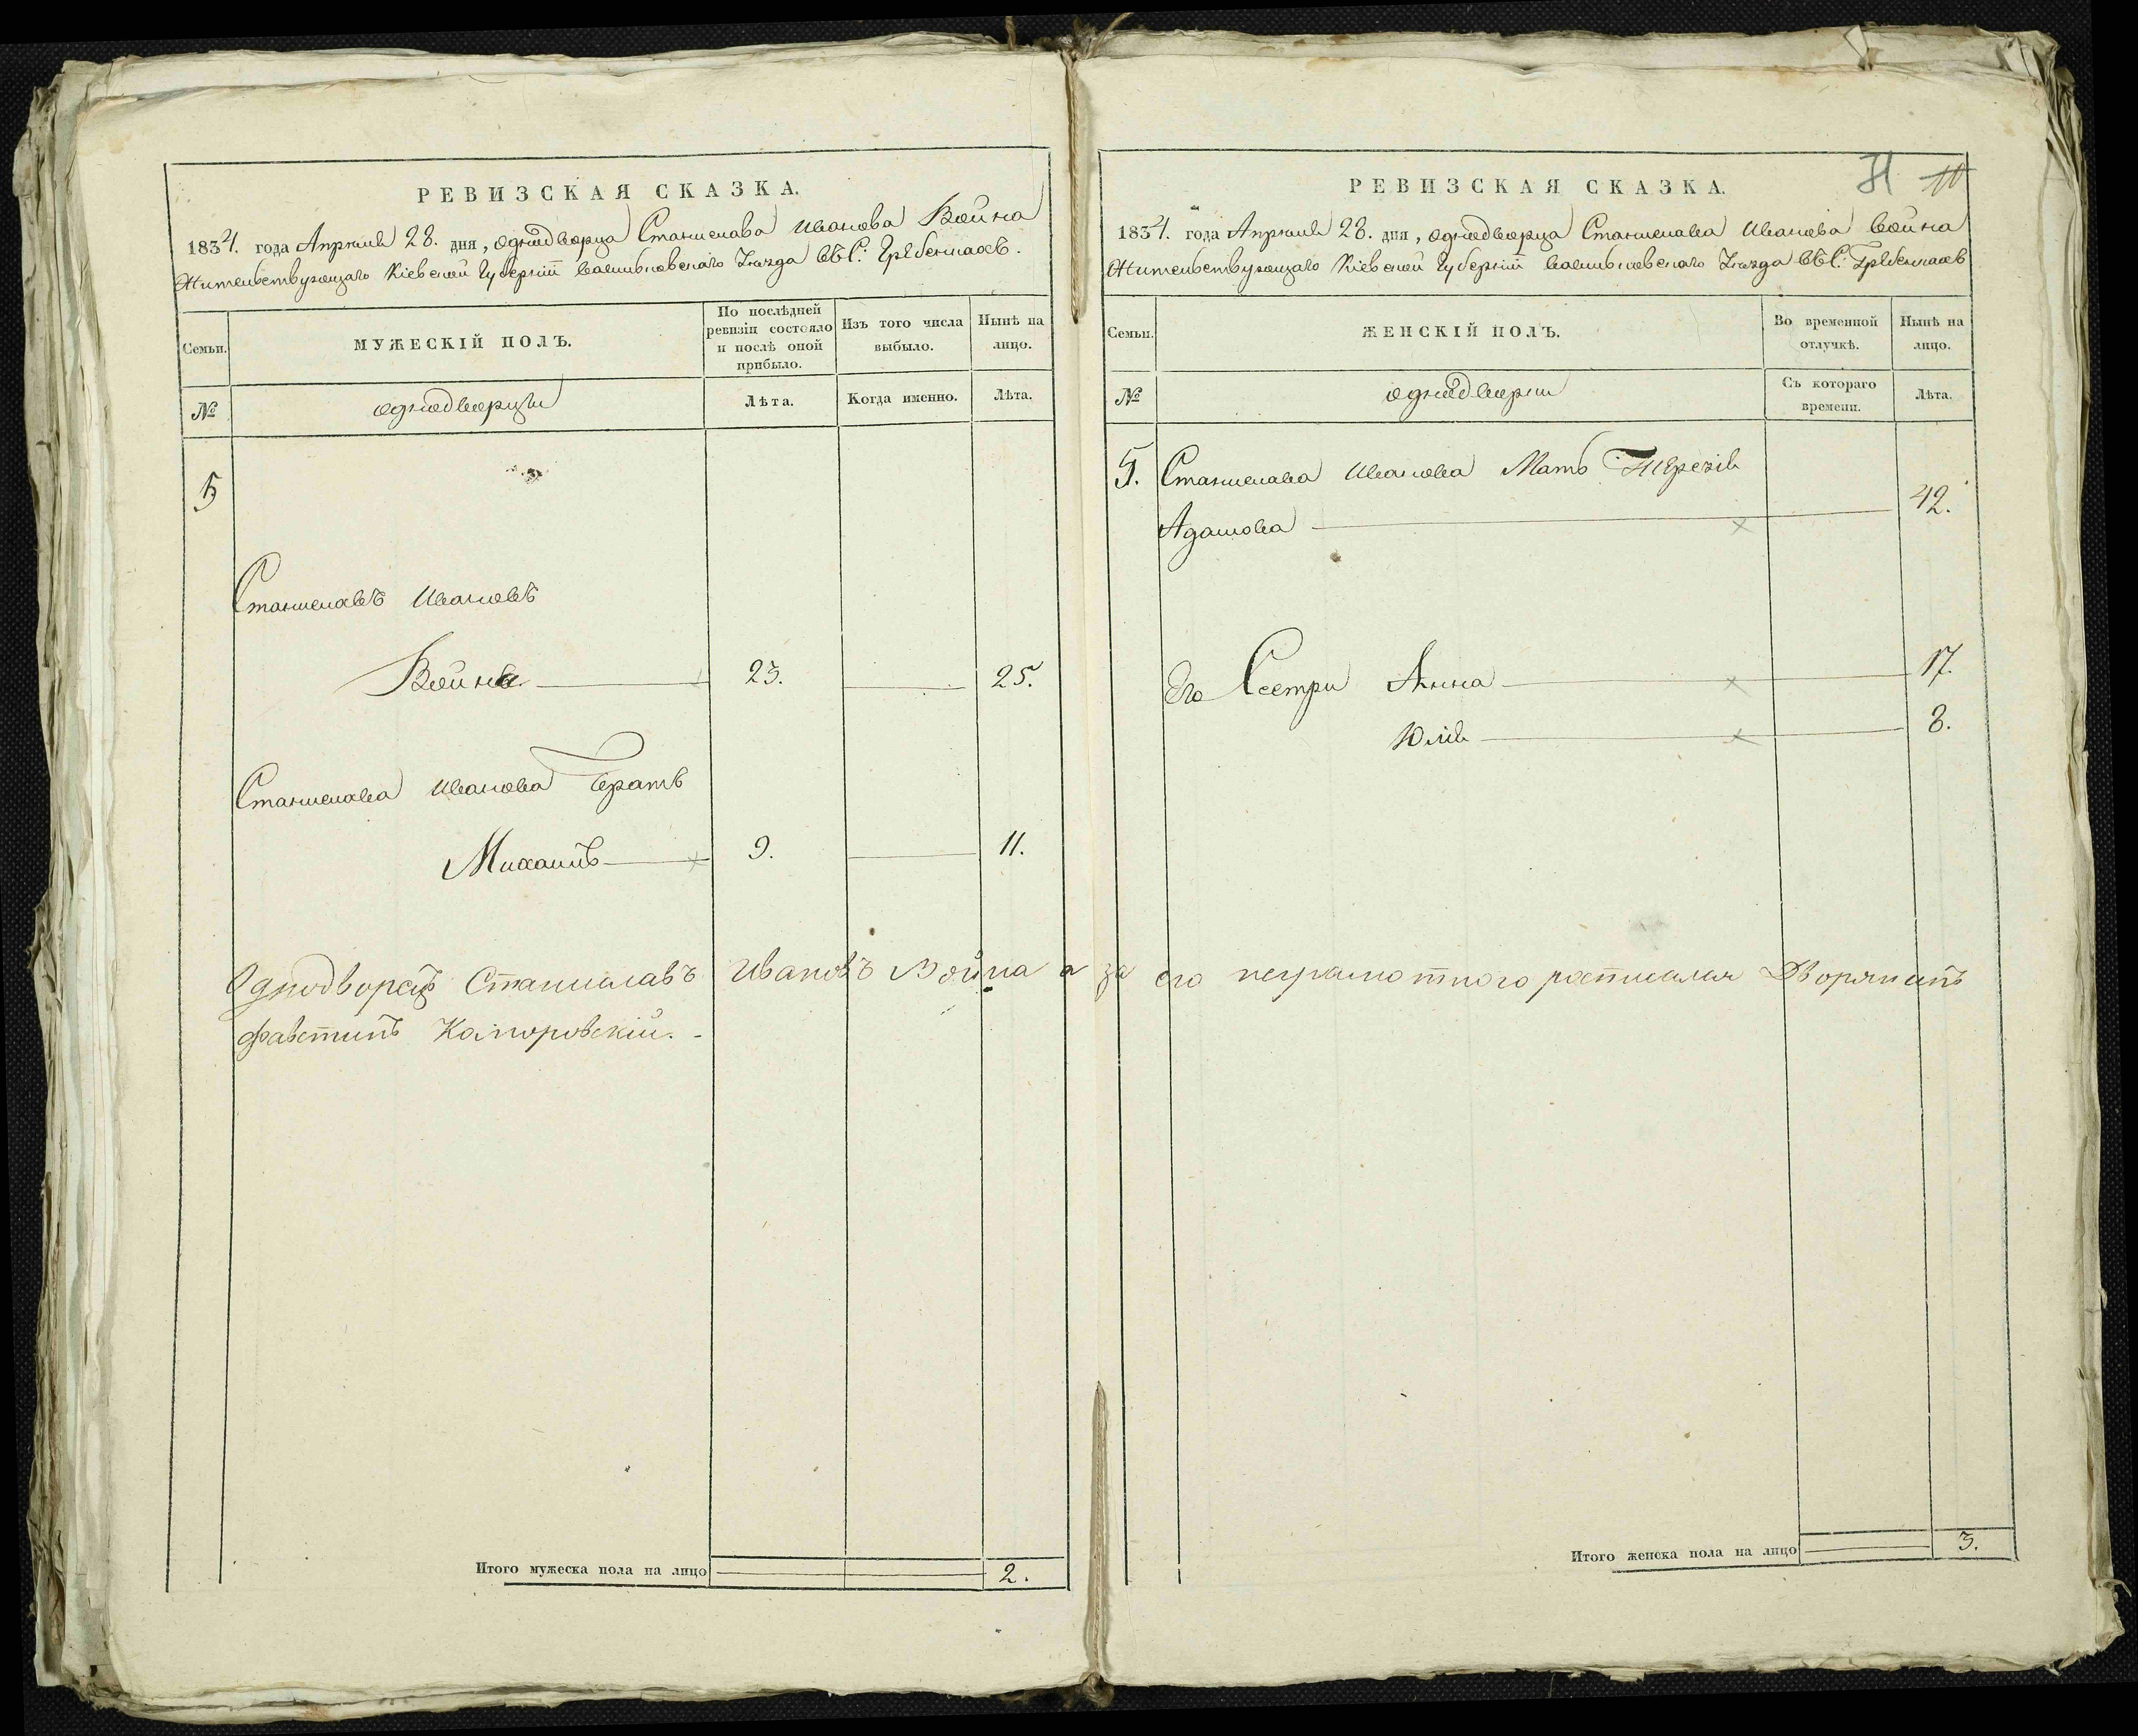 РЕВИЗСКАЯ СКАЗКА.
1834. года Апрѣля 28. дня, однодворца Станислава Иванова Война
Жительствующаго Кіевской Губерніи Васильковскаго Уѣзда въ С: Гребенкахъ.
Семьи.
МУЖЕСКІЙ ПОЛЪ.
По послѣдней ревизіи состояло и послѣ оной прибыло.
Изъ того числа выбыло.
Нынѣ на лицо.
№
однодворцы
Лѣта.
Когда именно.
Лѣта.
5
Станиславъ Ивановъ
Война 23. 25.
Станислава Иванова Братъ
Михаилъ 9. 11.
Однодворецъ Станиславъ Ивановъ Война а за его неграмотного росписался Дворянинъ
Фавстинъ
Итого мужеска пола на лицо 2.
РЕВИЗСКАЯ СКАЗКА.
1834. года Апрѣля 28. дня, однодворца Станислава Иванова Война
Жительствующаго Кіевской Губерніи Васильковскаго Уѣзда въ С: Гребенкахъ
Семьи.
ЖЕНСКІЙ ПОЛЪ.
Во временной отлучкѣ.
Нынѣ на лицо.
№
однодворки
Съ котораго времени.
Лѣта.
5. Станислава Иванова Мать Терезія
Адамова 42.
Его Сестры Анна 17.
Юлія 8.
Итого женска пола на лицо 3.